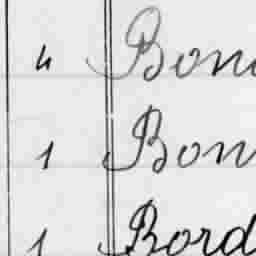 4 Bon
1 Bon
1 Bord